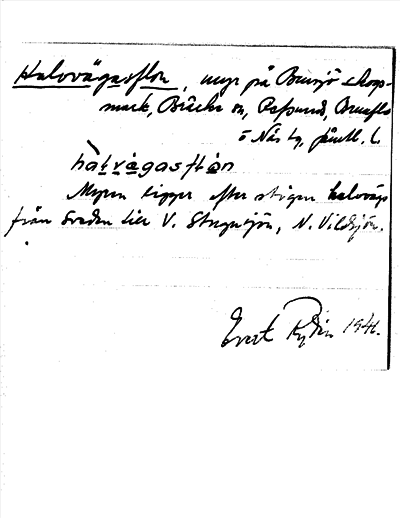 Halvvägasflon, myr på Bensjö skogs-
mark, Bräcke sn, Refsund, Brunflo
o Näs tg, Jämtl. l.
hàlvàgasflɷn
Myren ligger efter stigen halvvägs
från Sveden till V. Stugusjön, N. Vildsjön.
Evert Rydin 1941.